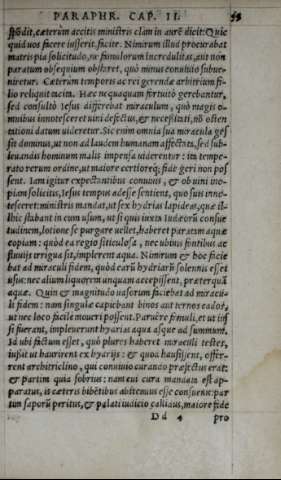 PARAPHR. CAP. II. 55
spōdit, cæterùm accitis ministris clàm in aurē dicit: Quic
quid uos facere iusserit, facite. Nimirum illud procurabat
matris pia solicitudo, ne famulorum incredulitas, aut non
paratum obsequium obstaret, quò minus conuiuio subue-
niretur. Cæterum tempus ac rei gerendæ arbitrium fi-
lio reliquit nacta. Hæc nequaquam fortuitò gerebantur,
sed consultò Iesus differebat miraculum, quò magis o-
mnibus innotesceret uini defectus, & necessitati, nō osten
tationi datum uideretur. Sic enim omnia sua miracula ges
sit dominus, ut non ad laudem humanam affectata, sed sub-
leuandis hominum malis impensa uiderentur: ita tempe-
rato rerum ordine, ut maior certiorq; fides geri non pos
sent. Iam igitur expectantibus conuiuis, & ob uini ino-
piam solicitis, Iesus tempus adesse sentiens, quo suis inno-
tesceret: ministris mandat, ut sex hydrias lapideas, quæ il-
lhic stabant in eum usum, ut si quis iuxta Iudæorū consue
tudinem, lotione se purgare uellet, haberet paratam aquæ
copiam: quòd ea regio siticulosa, nec ubiuis fontibus ac
fluuijs irrigua sit, implerent aqua. Nimirum & hoc facie
bat ad miraculi fidem, quòd earū hydriarū solennis esset
usus: nec alium liquorem unquam accepissent, præterquā
aquæ. Quin & magnitudo uasorum faciebat ad miracu-
li fidem: nam singulæ capiebant binos aut ternos cados,
ut nec loco facilè moueri possent. Paruêre famuli, et ut ius
si fuerant, impleuerunt hydrias aqua usque ad summum.
Id ubi factum esset, quò plures haberet miraculi testes,
iussit ut haurirent ex hydrijs: & quod hausissent, offer-
rent architriclino, qui conuiuio curando præfectus erat:
& partim quia sobrius: nam eius cura mandata est ap-
paratus, is cæteris bibētibus abstemius esse consueuit: par
tim saporū peritus, & palati iudicio callidus, maiore fide
Dd 4 pro